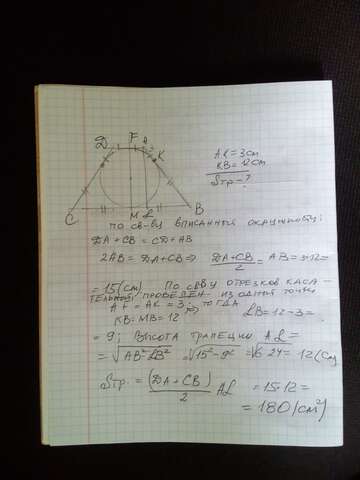 D F A
K
C M L B
AK = 3см
KB = 12см
Sтр - ?
по св-ву вписанной окружности:
DA + CB = CD + AB
2AB = DA + CB ⇒ DA + CB / 2 = AB = 3 + 12 =
= 15 (см) По св-ву отрезков каса-
тельных, проведен- из одной точки
AF = AK = 3; тогда
KB = MB = 12 LB = 12 - 3 =
= 9; Высота трапеции AL =
= √AB² - LB² = √15² - 9² = √6·24 = 12 (см
Sтр. = (DA + CB) / 2 AL = 15·12 =
= 180 (см²)